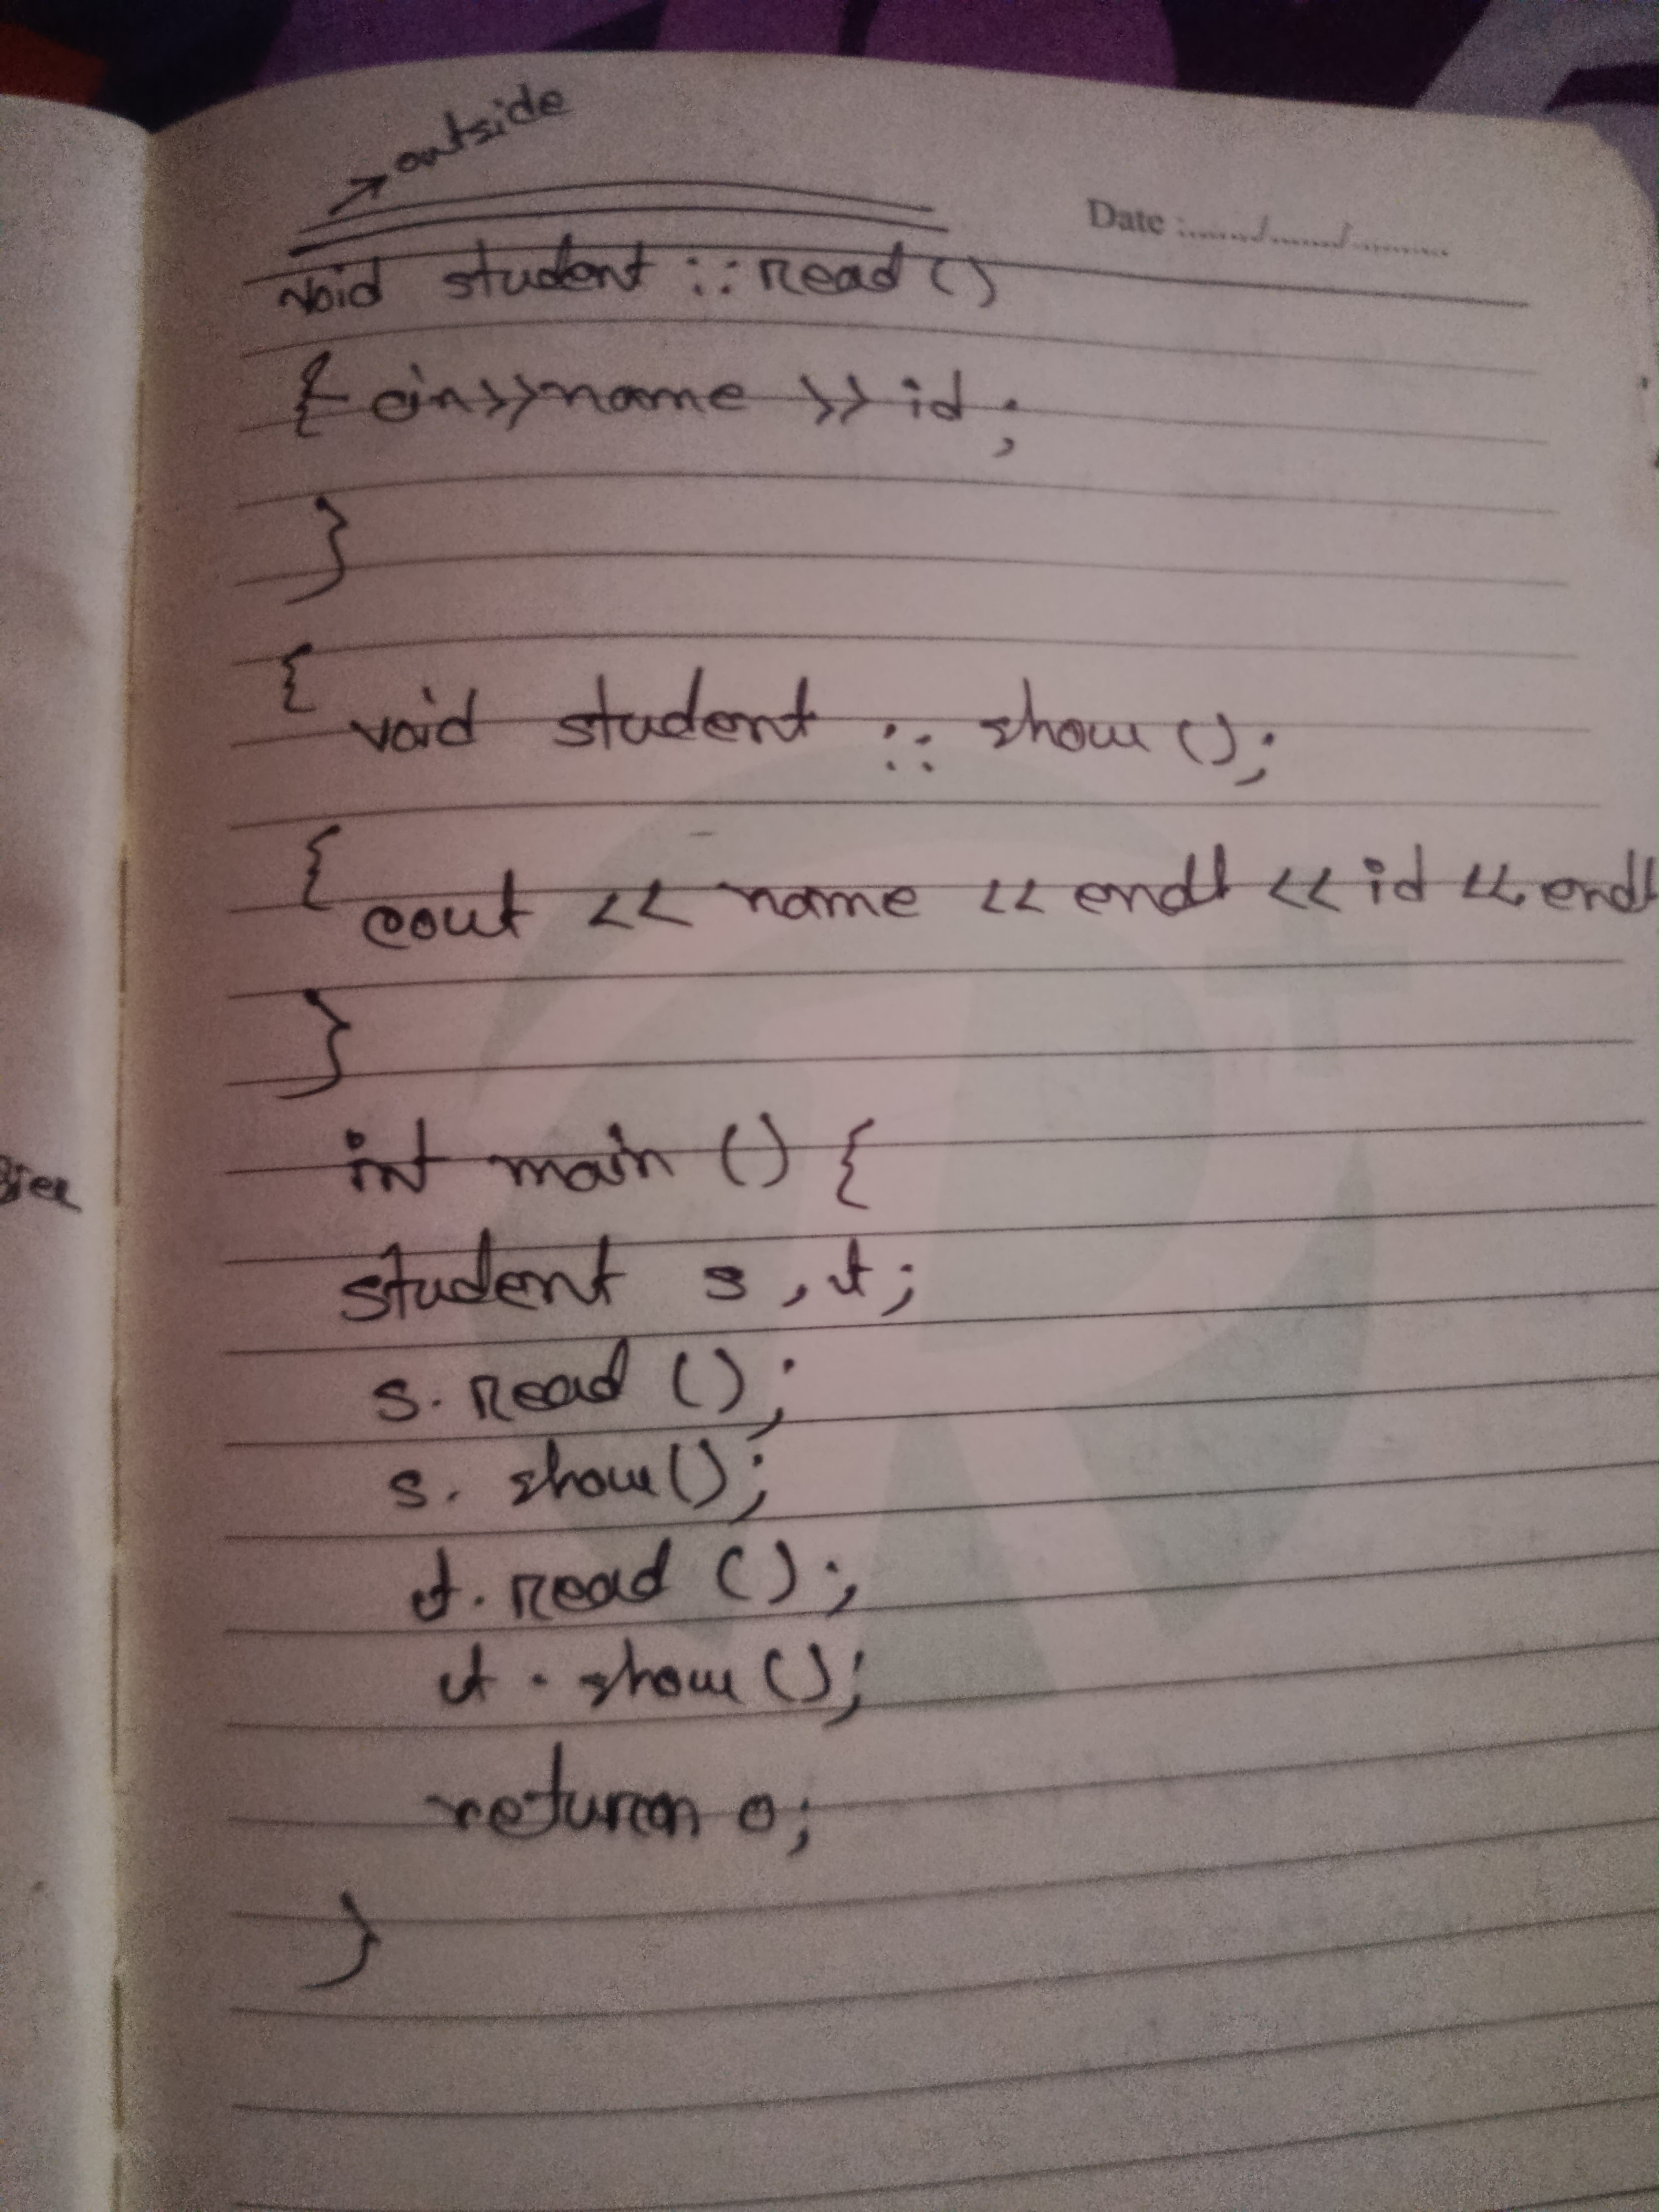 outside
Date :....../....../..........
void student :: read ()
{ cin>>name >> id ;
}
{
void student :: show ();
{
cout << name << endl << id << endl
}
int main () {
student s , t ;
s. read () ;
s. show() ;
t. read () ;
t . show () ;
return 0 ;
}